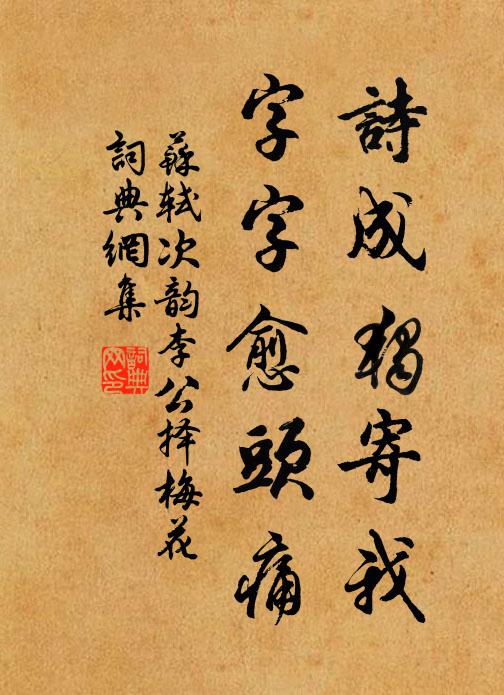 詩成獨寄我
字字愈頭痛
蘇軾次韵李公择梅花
詞典網集
詞典網印